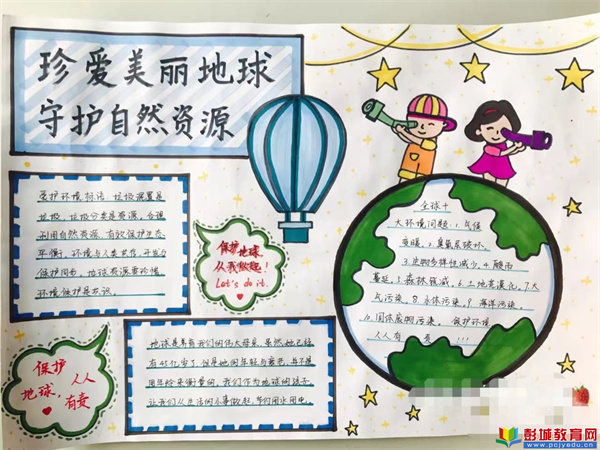 珍爱美丽地球
守护自然资源
爱护环境标语：垃圾混置是
垃圾，垃圾分类是资源。合理
利用自然资源，有效保护生态
平衡。环境与人类共存，开发与
保护同步。地球资源要珍惜，
环境保护是共识。
保护地球，
从我做起！
Let's do it.
全球十
大环境问题：1.气候
变暖。2.臭氧层破坏。
3.生物多样性减少。4.酸雨
蔓延。5.森林锐减。6.土地荒漠化。7.大
气污染。8.水体污染。9.海洋污染。
10.固体废物污染。保护环境
人人有责!!!
地球是养育我们的伟大母亲，虽然她已经
有45亿岁了，但是她的年轻与衰老，并不是
用年龄来衡量的，我们作为地球的孩子，
让我们从生活的小事做起，节约用水用电。
保护
地球，人人
有责
彭城教育网
www.pcjyedu.cn